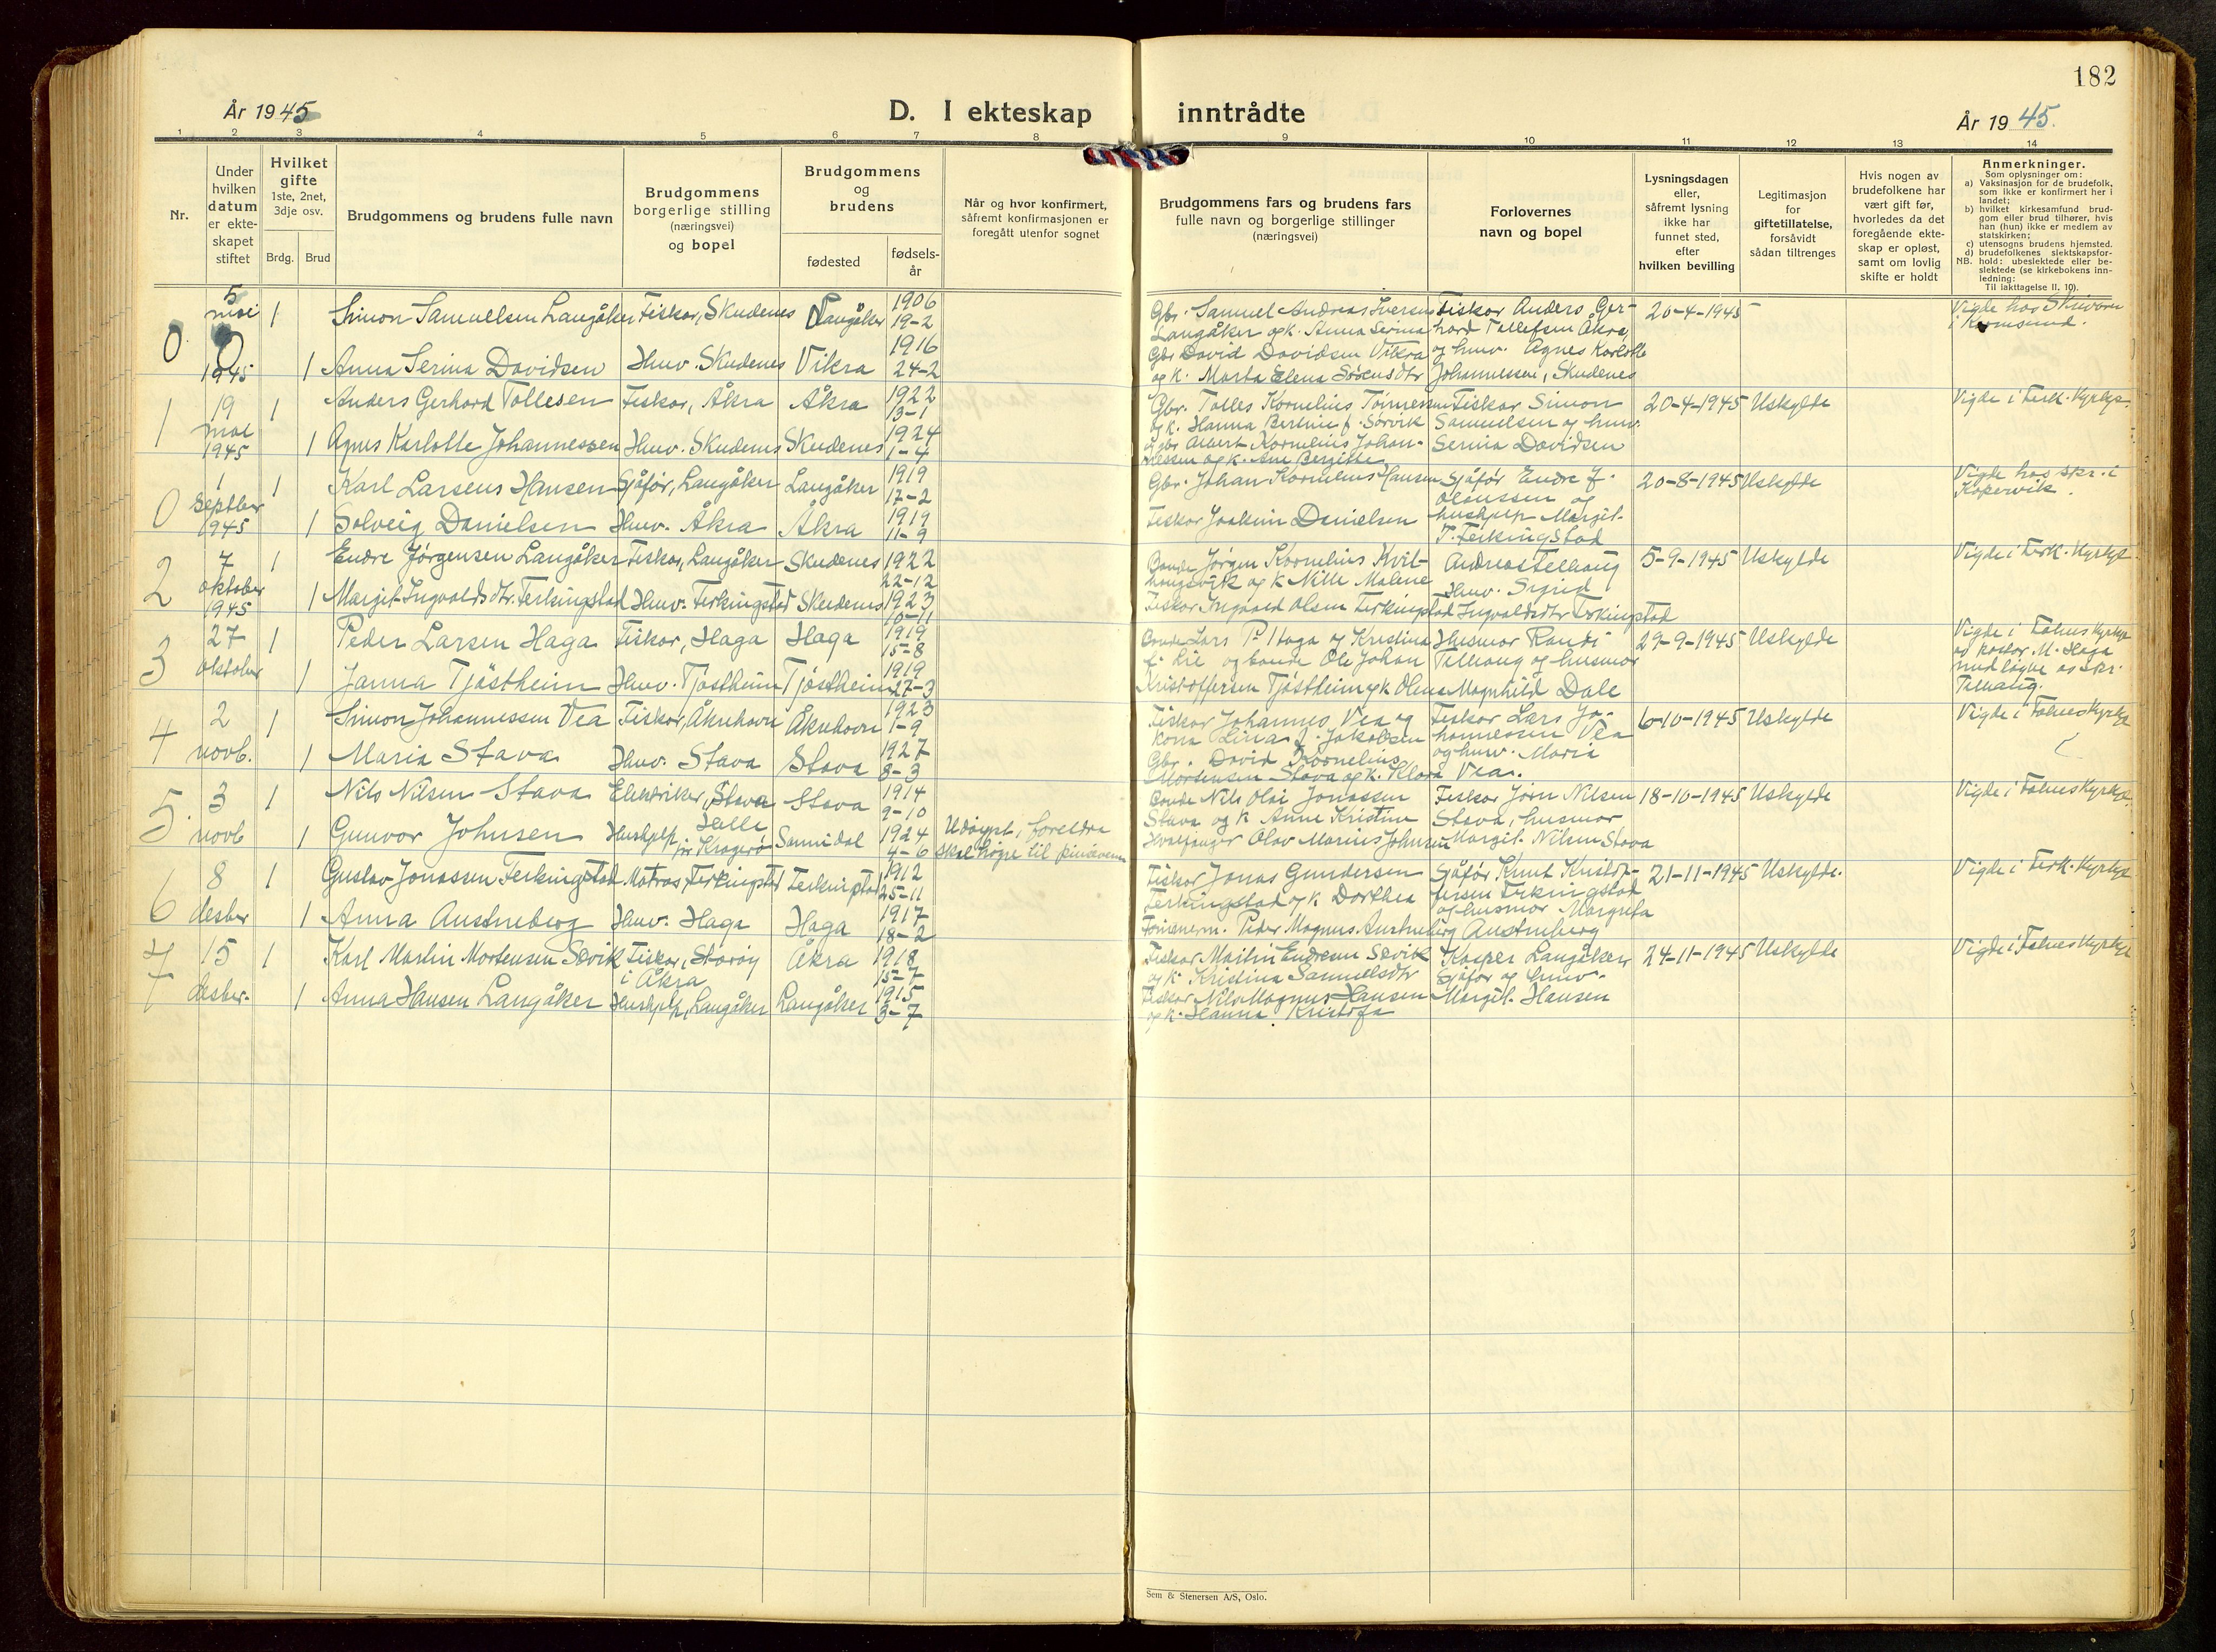 182
År 1945
D. I ekteskap inntrådte
År 1945.
1 2 3 4 5 6 7 8 9 10 11 12 13 14
Nr.
Under
hvilken
datum
er ekte-
skapet
stiftet
Hvilket
gifte
1ste, 2net,
3dje osv.
Brdg. Brud
Brudgommens og brudens fulle navn
Brudgommens
borgerlige stilling
(næringsvei)
og bopel
Brudgommens
og
brudens
fødested
fødsels-
år
Når og hvor konfirmert,
såfremt konfirmasjonen er
foregått utenfor sognet
Brudgommens fars og brudens fars
fulle navn og borgerlige stillinger
(næringsvei)
Forlovernes
navn og bopel
Lysningsdagen
eller,
såfremt lysning
ikke har
funnet sted,
efter
hvilken bevilling
Legitimasjon
for
giftetillatelse,
forsåvidt
sådan tiltrenges
Hvis nogen av
brudefolkene har
vært gift før,
hvorledes da det
foregående ekte-
skap er opløst,
samt om lovlig
skifte er holdt
Anmerkninger.
Som oplysninger om:
a) Vaksinasjon for de brudefolk,
som ikke er konfirmert her i
landet;
b) hvilket kirkesamfund brud-
gom eller brud tilhører, hvis
han (hun) ikke er medlem av
statskirken;
c) utensogns brudens hjemsted.
d) brudefolkenes slektskapsfor-
NB. hold: ubeslektede eller be-
slektede (se kirkebokens inn-
ledning:
Til iakttagelse II, 10).
0 5 mai 1945
1 Simon Samuelsen Langåker Fiskar, Skudenes Langåker 1906 19-2
1 Anna Serina Davidsen Husv. Skudenes Vikra 1916 24-2
Gbr. Samuel Andreas Iversen
Langåker og k. Anna Serina
Gbr David Davidsen Vikra
og k. Marta Elena Sørensdtr
Fiskar Anders Ger-
hard Tollefsen Åkra,
og husv. Agnes Karlotte
Johannessen, Skudenes
20-4-1945
Vigde hos Skrivaren
i Karmsund.
1 19 mai 1945
1 Anders Gerhard Tollesen Fiskar, Åkra Åkra 1922 13-1
1 Agnes Karlotte Johannessen Husv. Skudenes Skudenes 1924 1-4
Gbr. Tolles Kornelius Tønnessen
og k. Hanna Bertine f. Sørvik
og gbr Albert Kornelius Johan-
nessen og k. Ane Bergitte
Fiskar Simon
Samuelsen og husv.
Serina Davidsen
20-4-1945 Uskylde
Vigde i Ferk. Kyrkje.
0 1 Septber 1945
1 Karl Larsens Hansen Sjåfør, Langåker Langåker 1919 17-2
1 Solveig Danielsen Husv. Åkra Åkra 1919 11-9
Gbr. Johan Kornelius Hansen
Fiskar Joakim Danielsen
Sjåfør Endre J.
Olaussen og
hushjelp Margit
T. Ferkingstad
20-8-1945 Uskylde
Vigde hos skr. i
Kopervik.
2 7 oktober 1945
1 Endre Jørgensen Langåker Fiskar, Langåker Skudenes 1922 22-12
1 Margit Ingvaldsdtr. Ferkingstad Husv. Ferkingstad Skudenes 1923 10-11
Bonde Jørgen Kornelius Kvil-
haugsvik og k Nille Malene
Fiskar Ingvald Olsen Ferkingstad
Andreas Tellhaug
Husv. Sigrid
Ingvaldsdtr Ferkingstad
5-9-1945 Uskylde
Vigde i Ferk. Kyrkje.
3 27 oktober
1 Peder Larsen Haga Fiskar, Haga Haga 1919 15-8
1 Janna Tjøstheim Husv. Tjøstheim Tjøstheim 1919 27-3
Bonde Lars P. Haga og Kristina
f. Lie og bonde Ole Johan
Kristoffersen Tjøstheim og k Olena
Husmor Randi
Tellhaug og husmor
Magnhild Dale
29-9-1945 Uskylde
Vigde i Falnes Kyrkje
av pastor M. Haga
med løyve av spr.
4 2 novb.
1 Simon Johannessen Vea Fiskar, Åkrehavn Åkrehavn 1923 1-9
1 Maria Stava Husv. Stava Stava 1927 8-3
Fiskar Johannes Vea og
kona Lina f. Jakobsen
Gbr. David Kornelius
Mortensen Stava og k. Klara
Fiskar Lars Jo-
hannessen Vea
og husv. Maria
Vea.
6-10-1945 Uskylde
Vigde i Falnes Kyrkje
5 3 novb
1 Nils Nilsen Stava Elektriker, Stava Stava 1914 9-10
1 Gunvor Johnsen Hushjelp, Helle pr Kragerø Sannidal 1924 4-6
Udøypt, foreldra
skal høyre til pinsevenn
Bonde Nils Olai Jonassen
Stava og k Anne Kristine
Kvalfanger Olav Marius Johnsen
Fiskar Jørn Nilsen
Stava, husmor
Margit Nilsen Stava
18-10-1945 Uskylde
Vigde i Falnes Kyrkje.
6 8 desber
1 Gustav Jonassen Ferkingstad Matros, Ferkingstad Ferkingstad 1912 25-11
1 Anna Austneberg Husv. Haga Haga 1917 18-2
Fiskar Jonas Gundersen
Ferkingstad og k Dorthea
Peder Magnus Austneberg
Sjåfør Knut Kristof-
fersen Ferkingstad
og husmor Margreta
Austneberg
21-11-1945 Uskylde.
Vigde i Ferk. Kyrkje
7 15 desber.
1 Karl Martin Mortensen Sævik Fiskar, Storøy i Åkra Åkra 1918 15-7
1 Anna Hansen Langåker Hushjelp, Langåker Langåker 1915 3-7
Fiskar Martin Endresen Sævik
og k. Kristina Samuelsdtr
Fiskar Nils Magnus Hansen
og k. Hanna Kristofa
Kasper Langåker
Sjåfør og husv.
Margit Hansen
24-11-1945 Uskylde
Vigde i Falnes Kyrkje
Sem & Stenersen A/S, Oslo.